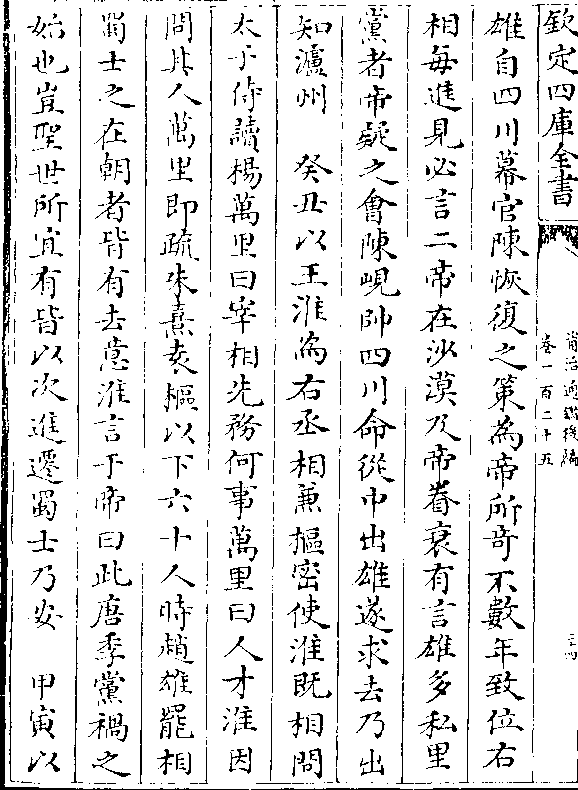 欽定四庫全書
資治通鑑後編
卷一百二十五
三四
雄自四川幕官陳恢復之策為帝所奇不數年致位右
相毎進見必言二帝在沙漠及帝眷衰有言雄多私里
黨者帝疑之會陳峴帥四川命從中出雄遂求去乃出
知瀘州　癸丑以王淮為右丞相兼樞密使淮既相問
太子侍讀楊萬里曰宰相先務何事萬里曰人才淮因
問其人萬里即疏朱熹袁樞以下六十人時趙雄罷相
蜀士之在朝者皆有去意淮言于帝曰此唐季黨禍之
始也豈聖世所宜有皆以次進遷蜀士乃安　甲寅以